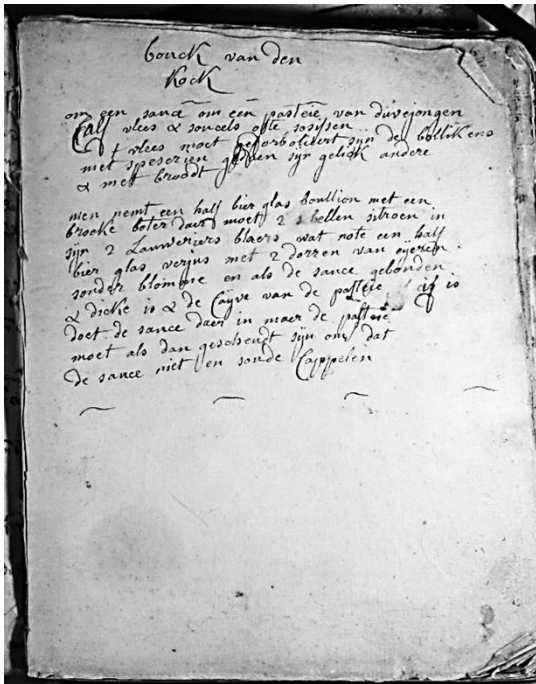 bouck van den
kock
om een sance om een pasteie van duvejongen
Calf vlees & soucels ofte sosissen
t vlees moet geporboliert sijn de bollikens
met speserien gedaen sijn gelick andere
& met broodt
men nemt een half bier glas boullion met een
brocke boter daer moet 2 schellen sitroen in
sijn 2 Lauweriers blaers wat note een half
bier glas verjus met 2 dorren van eijeren
sonder blomme en als de sance gebonden
& dicke is & de Cayve van de pasteie af is
doet de sance daer in maer de pasteie
moet als dan geschendt sijn om dat
de sance niet en soude Cappelen